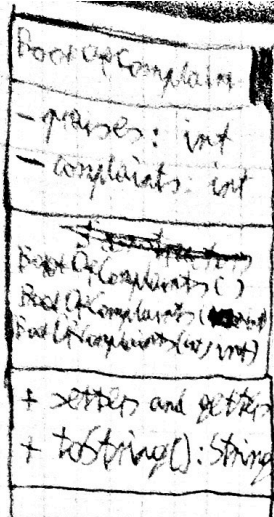 BookOfComplain
- praises: int
- complaints: int
BookOfComplaints()
BookOfComplaints(
BookOfComplaints(int, int)
+ setters and getters
+ toString(): String